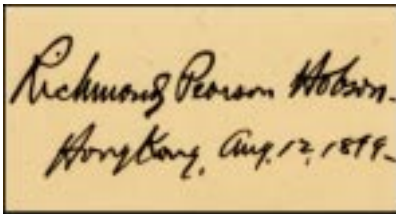 Richmond Pearson Hobson.
Hong Kong, Aug. 12, 1899-